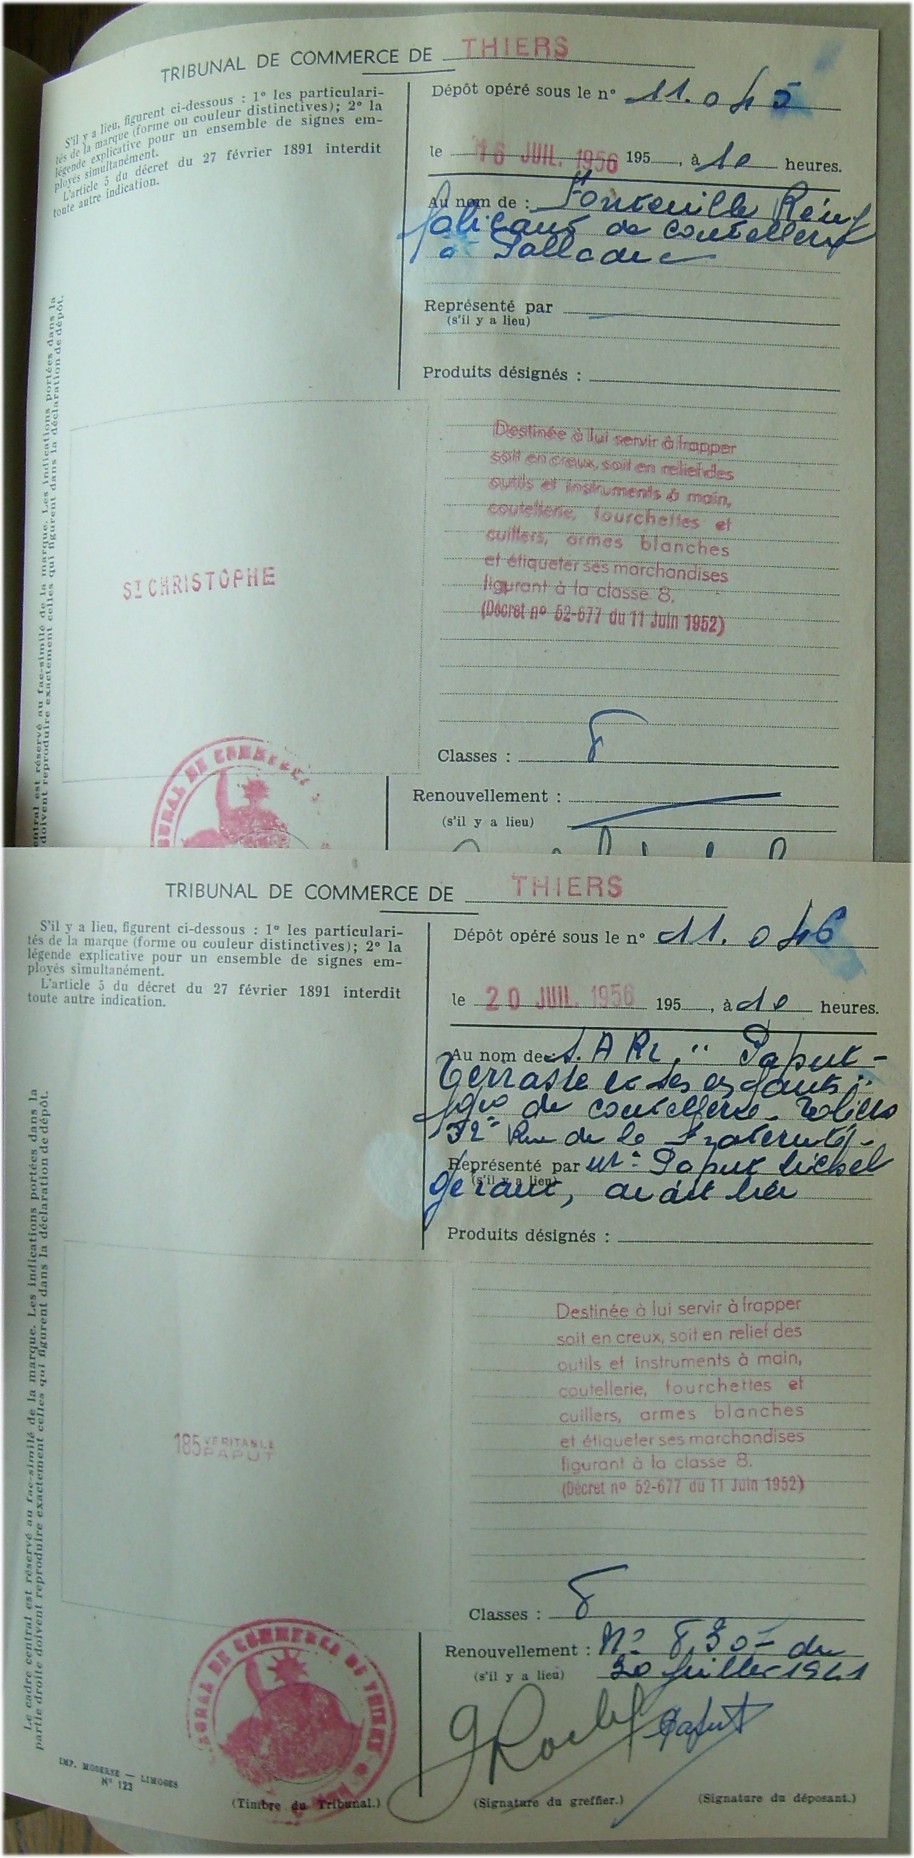 TRIBUNAL DE COMMERCE DE THIERS
S'il y a lieu, figurent ci-dessous : 1º les particulari-
tés de la marque (forme ou couleur distinctives); 2º la
légende explicative pour un ensemble de signes em-
ployés simultanément.
L'article 5 du décret du 27 février 1891 interdit
toute autre indication.
Dépôt opéré sous le nº 11.045
le 16 JUIL. 1956 195 , à 10 heures.
Au nom de : Fonteuille
de
à
Représenté par
(s'il y a lieu)
Produits désignés :
entral est réservé au fac-similé de la marque. Les indications portées dans la
doivent reproduire exactement celles qui figurent dans la déclaration de dépôt.
ST CHRISTOPHE
Destinée à lui servir à frapper
soit en creux, soit en relief des
outils et instruments à main,
coutellerie, fourchettes et
cuillers, armes blanches
et étiqueter ses marchandises
figurant à la classe 8.
(Décret nº 52-677 du 11 Juin 1952)
Classes : 8
Renouvellement :
(s'il y a lieu)
TRIBUNAL DE COMMERCE DE THIERS
S'il y a lieu, figurent ci-dessous : 1º les particulari-
tés de la marque (forme ou couleur distinctives); 2º la
légende explicative pour un ensemble de signes em-
ployés simultanément.
L'article 5 du décret du 27 février 1891 interdit
toute autre indication.
Dépôt opéré sous le nº 11.046
le 20 JUIL. 1956 195 , à 10 heures.
Au nom de S.A.R.L. " Paput -
Terrasse et ses enfants "
de coutellerie -
32 - Rue de la Fraternité -
Représenté par Mr. Paput Michel
(s'il y a lieu)
gérant,
Produits désignés :
Le cadre central est réservé au fac-similé de la marque. Les indications portées dans la
partie droite doivent reproduire exactement celles qui figurent dans la déclaration de dépôt.
185 VERITABLE
PAPUT
Destinée à lui servir à frapper
soit en creux, soit en relief des
outils et instruments à main,
coutellerie, fourchettes et
cuillers, armes blanches
et étiqueter ses marchandises
figurant à la classe 8.
(Décret nº 52-677 du 11 Juin 1952)
Classes : 8
Renouvellement : Nº 8.30- du
(s'il y a lieu) 30 Juillet 1941
TRIBUNAL DE COMMERCE DE THIERS
Paput
IMP. MODERNE — LIMOGES
Nº 123
(Timbre du Tribunal.)
(Signature du greffier.)
(Signature du déposant.)